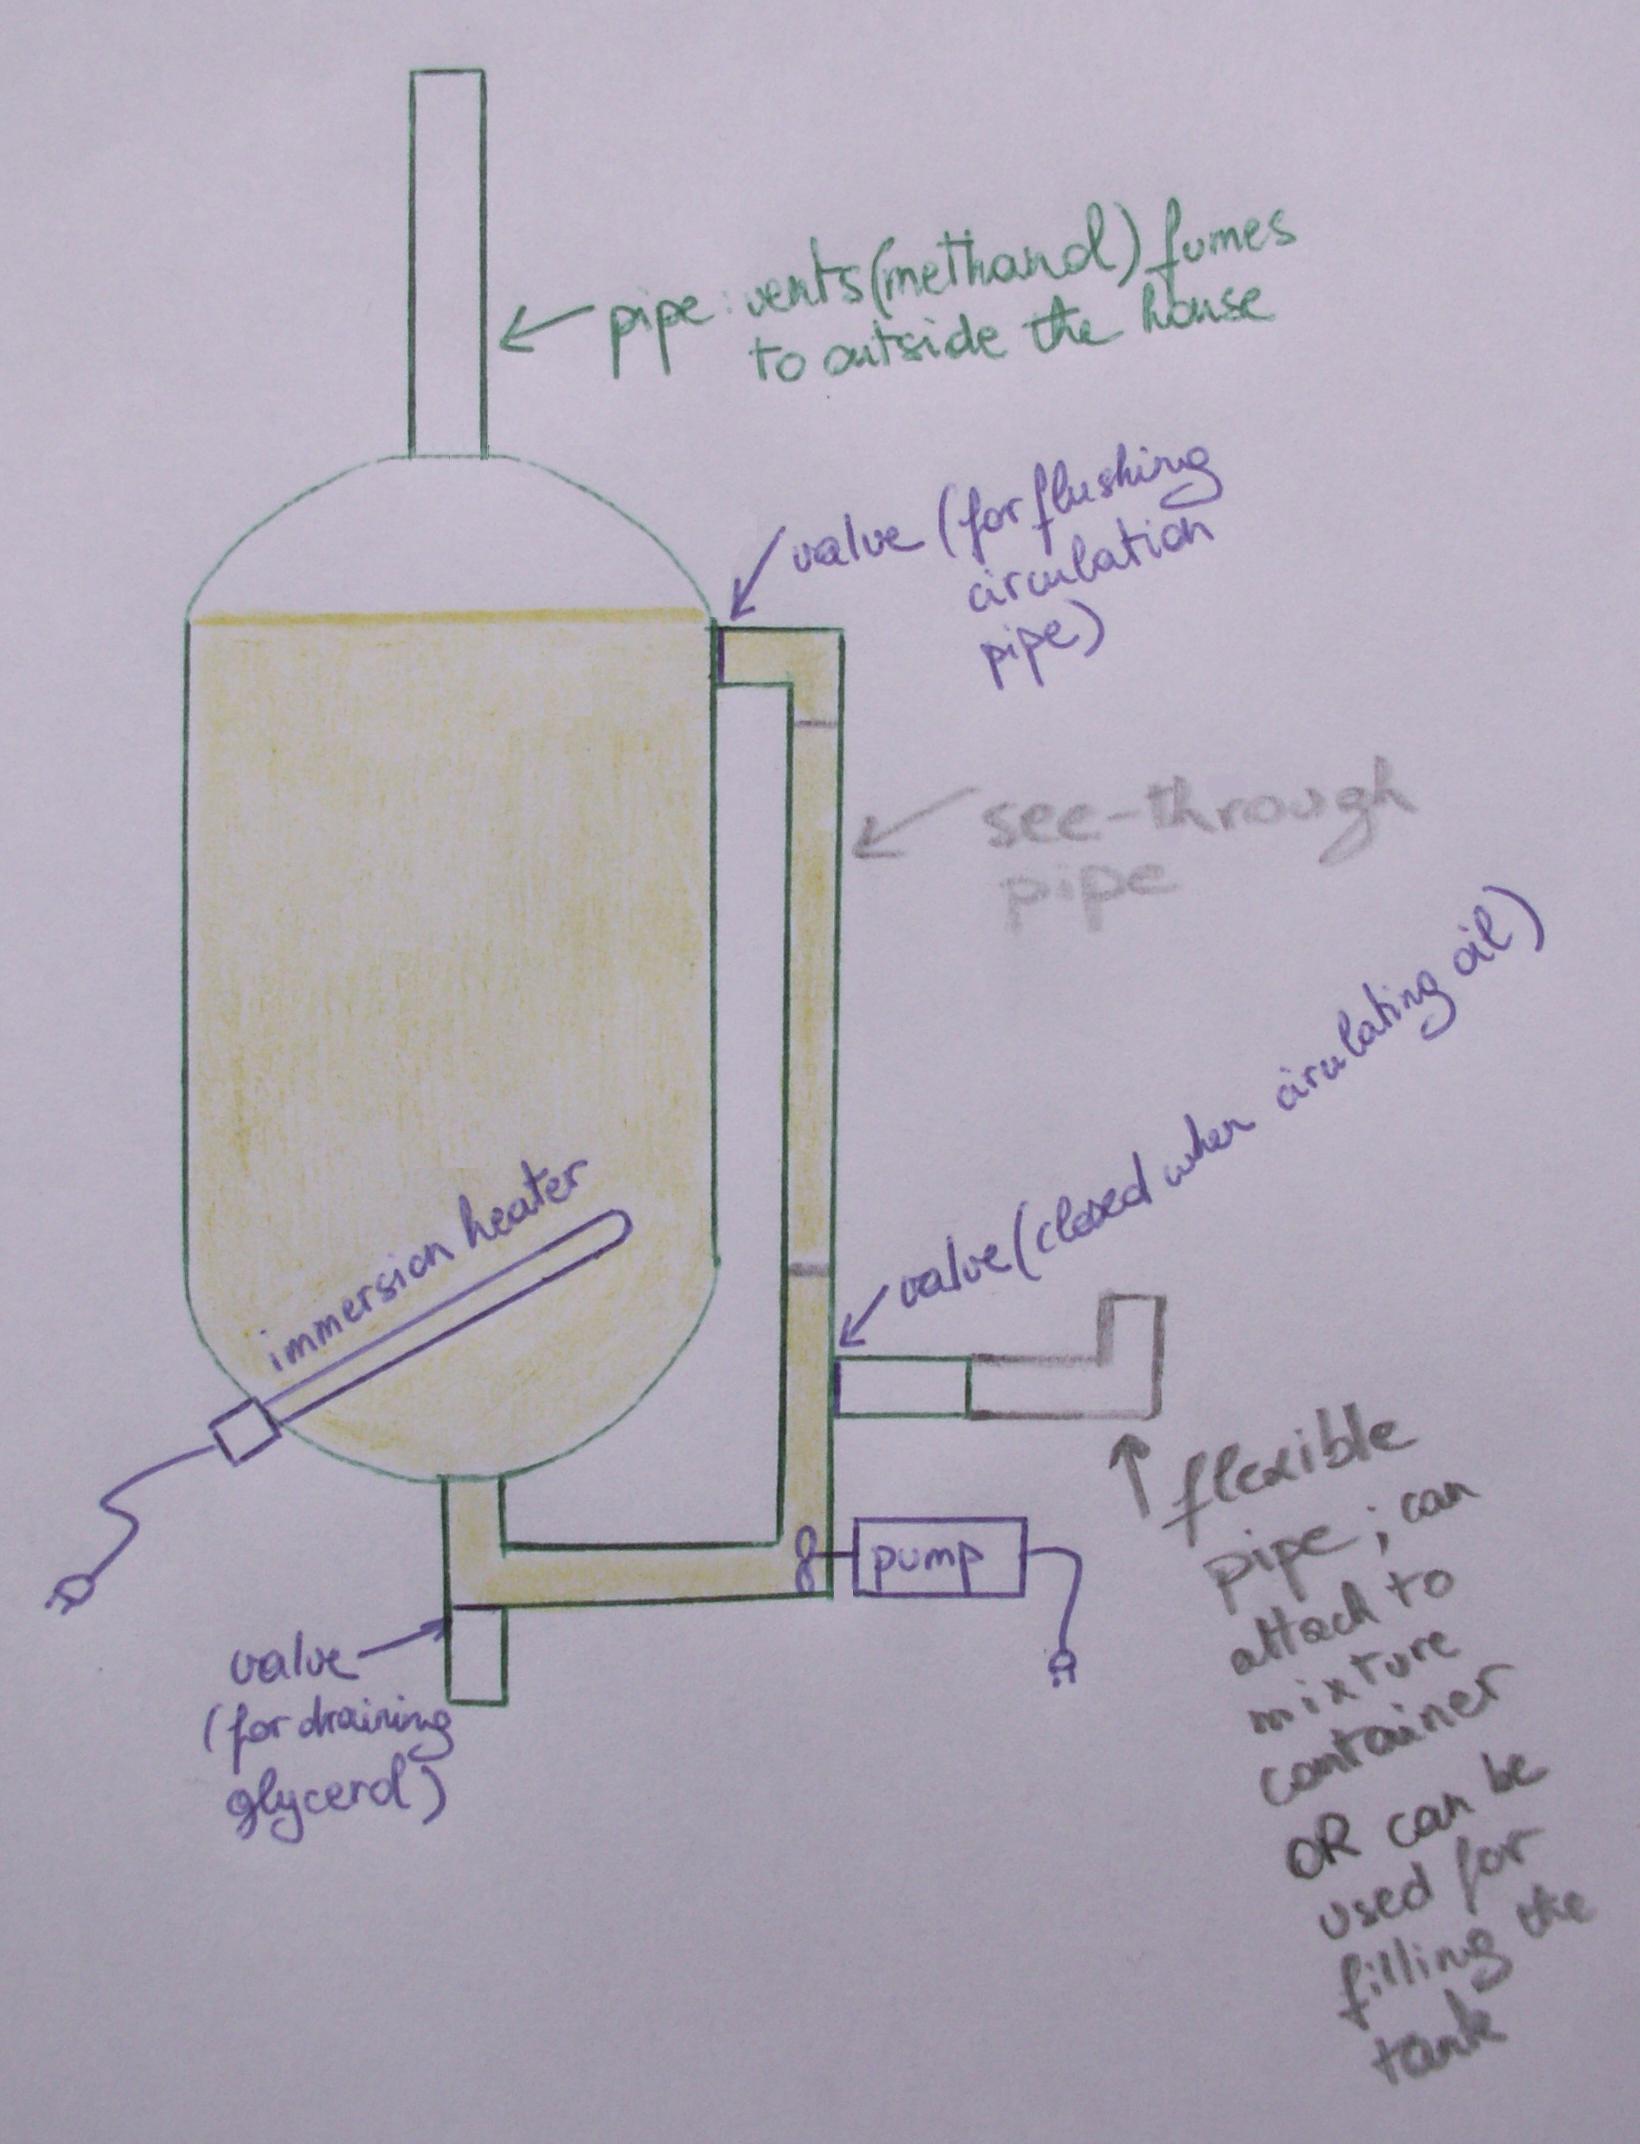 pipe: vents (methanol) fumes
to outside the house
valve (for flushing
circulation
pipe)
see-through
pipe
valve (closed when circulating oil)
immersion heater
flexible
pipe; can
attach to
mixture
container
OR can be
used for
filling the
tank
pump
valve
(for draining
glycerol)